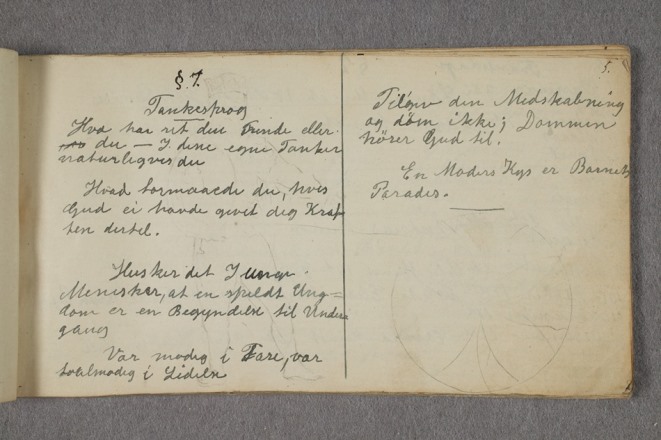 §. 7.
Tankesprog
Hvo har ret din Fiende eller
du — I dine egne Tanker
naturligvis du
Hvad formaaede du, hvis
Gud ei havde givet dig Kraf-
ten dertil.
Husker det I unge
Mennisker, at en spildt Ung=
dom er en Begyndelse til Under
gang
Vær modig i Fare, vær
taalmodig i Lidelse
5.
Tilgiv din Medskabning
og döm ikke; Dommen
hörer Gud til.
En Moders Kys er Barnets
Paradis.